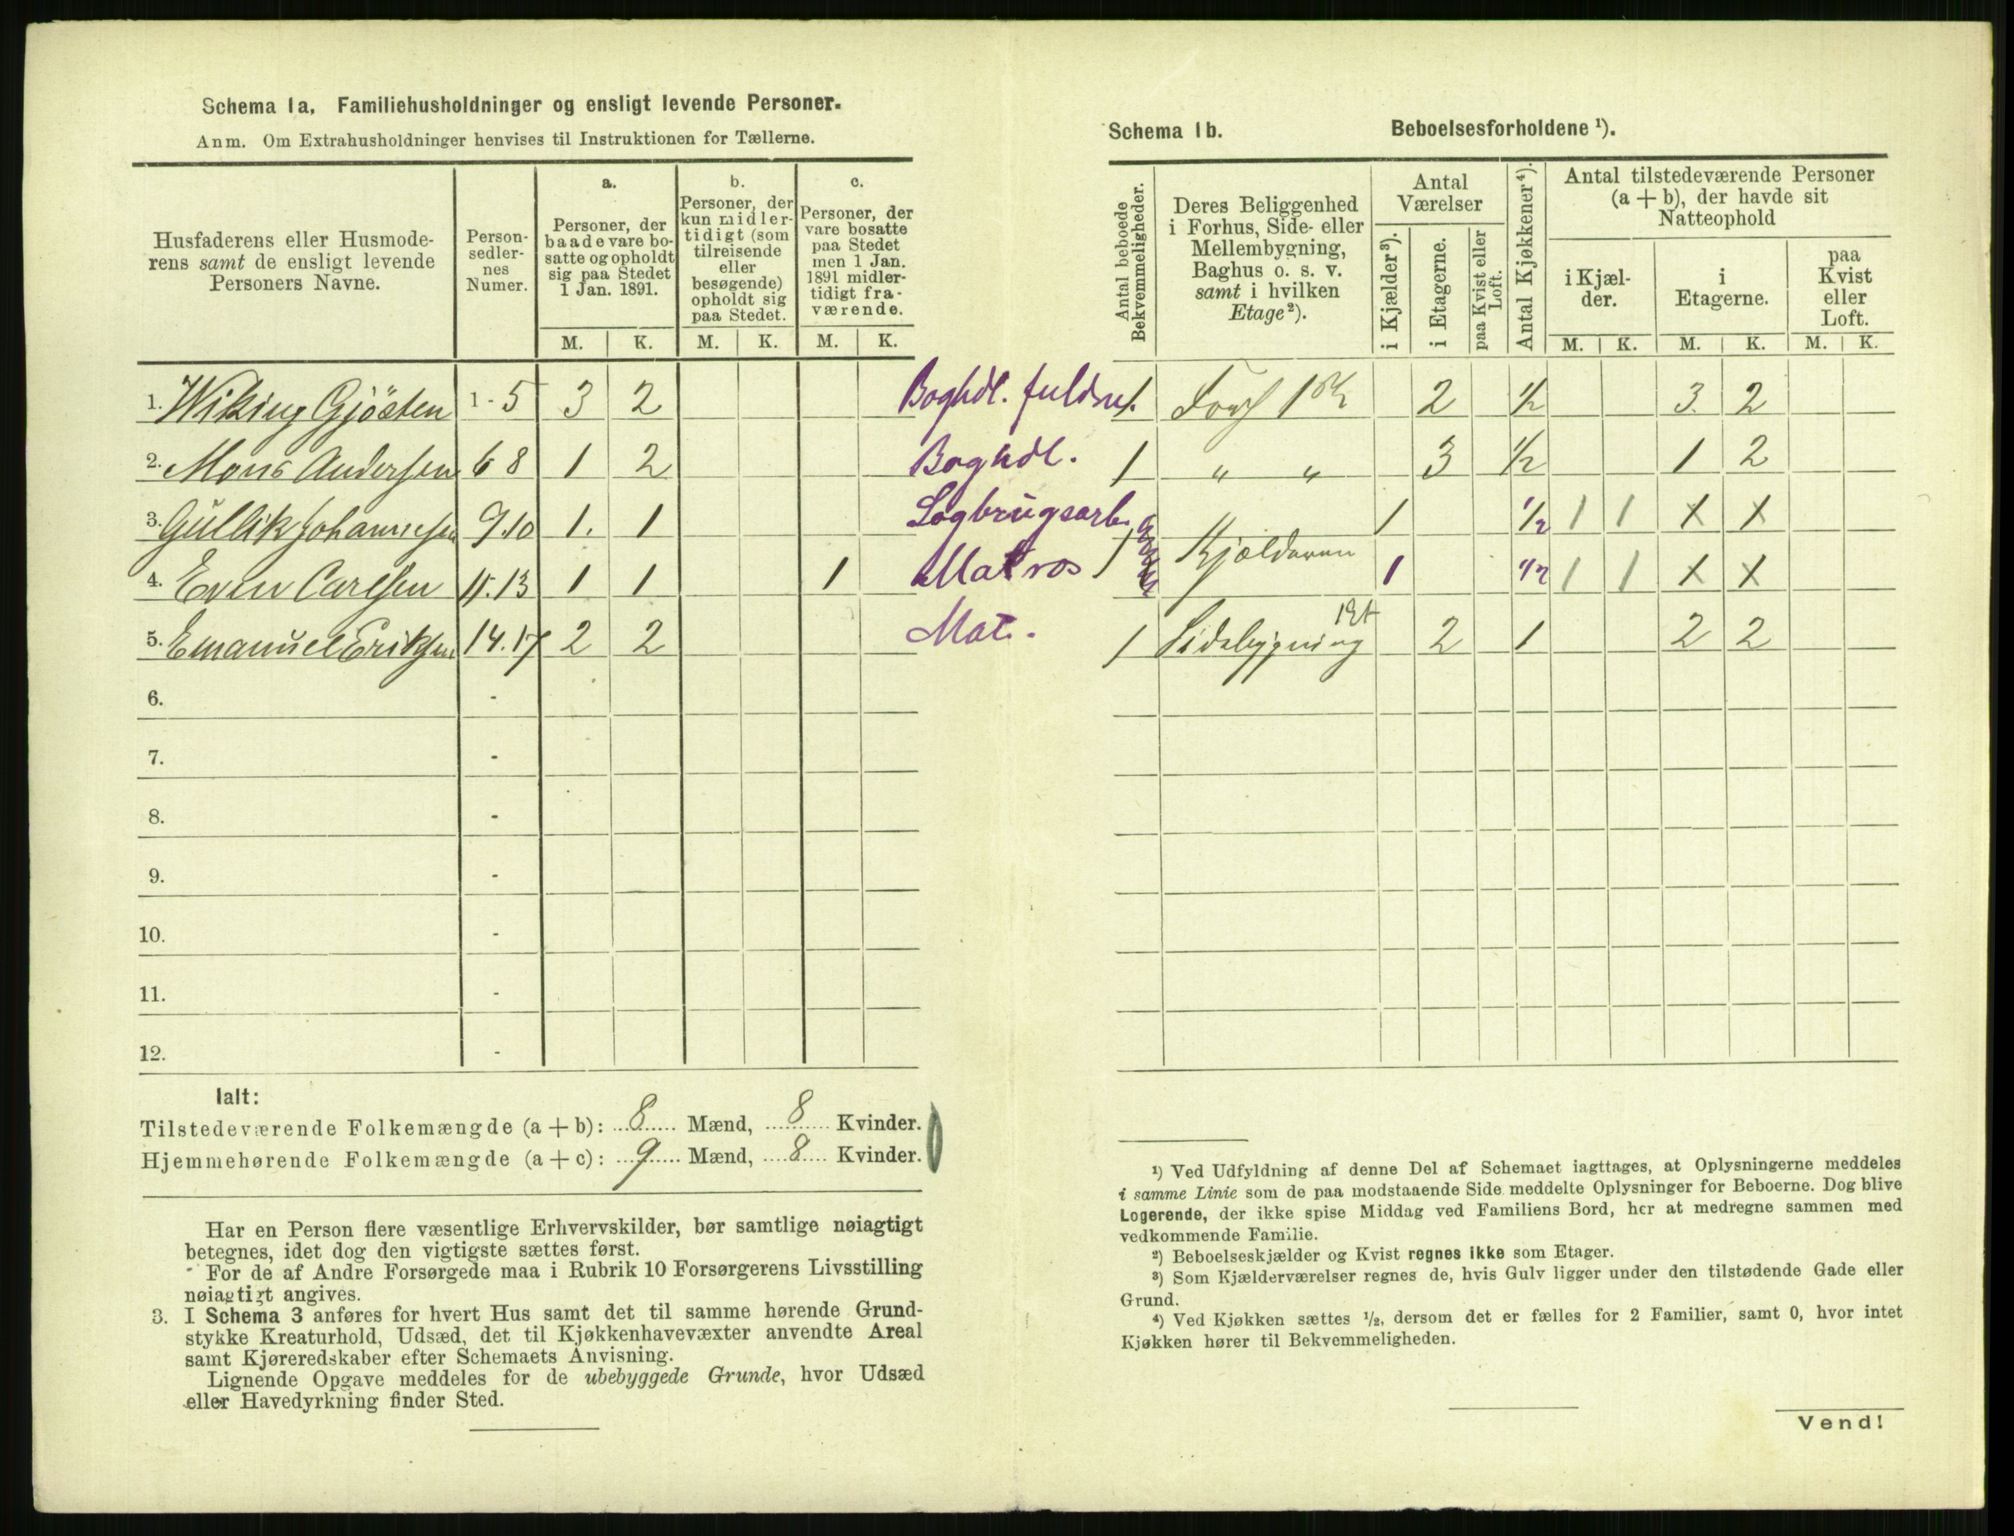 Schema 1a. Familiehusholdninger og ensligt levende Personer.
Anm. Om Extrahusholdninger henvises til Instruktionen for Tællerne.
Husfaderens eller Husmode-
rens samt de ensligt levende
Personers Navne.
Person-
sedler-
nes
Numer.
a.
Personer, der
baade vare bo-
satte og opholdt
sig paa Stedet
1 Jan. 1891.
b.
Personer, der
kun midler-
tidigt (som
tilreisende
eller
besøgende)
opholdt sig
paa Stedet.
c.
Personer, der
vare bosatte
paa Stedet
men 1 Jan.
1891 midler-
tidigt fra-
værende.
M. K. M. K. M. K.
1. Wiking Gjösten 1-5 3 2
2. Mons Andersen 6 8 1 2
3. Gullik Johannesen 9.10 1. 1
4. Even Carlsen 11.13 1 1 1
5. Emanuel Eriksen 14.17 2 2
6. -
7. -
8. -
9. -
10. -
11. -
12. -
Ialt:
Tilstedeværende Folkemængde (a + b): 8 Mænd, 8 Kvinder.
Hjemmehørende Folkemængde (a + c): 9 Mænd, 8 Kvinder.
Har en Person flere væsentlige Erhvervskilder, bør samtlige nøiagtigt
betegnes, idet dog den vigtigste sættes først.
For de af Andre Forsørgede maa i Rubrik 10 Forsørgerens Livsstilling
nøiagtigt angives.
3. I Schema 3 anføres for hvert Hus samt det til samme hørende Grund-
stykke Kreaturhold, Udsæd, det til Kjøkkenhavevæxter anvendte Areal
samt Kjøreredskaber efter Schemaets Anvisning.
Lignende Opgave meddeles for de ubebyggede Grunde, hvor Udsæd
eller Havedyrkning finder Sted.
Schema 1b. Beboelsesforholdene ¹).
Antal beboede
Bekvemmeligheder.
Deres Beliggenhed
i Forhus, Side- eller
Mellembygning,
Baghus o. s. v.
samt i hvilken
Etage²).
Antal
Værelser
i Kjælder³).
i Etagerne.
paa Kvist eller
Loft.
Antal Kjøkkener⁴).
Antal tilstedeværende Personer
(a + b), der havde sit
Natteophold
i Kjæl-
der.
i
Etagerne.
paa
Kvist
eller
Loft.
M. K. M. K. M. K.
Boghdl. fuldm. 1 2 ½ 3. 2
Boghdl. 1 " " 3 ½ 1 2
Sagbrugsarb. 1 ½ 1 1 x x
Matros 1 Kjælderen 1 ½ 1 1 x x
Mat. 1 Sidebygning 1 Et 2 1 2 2
¹) Ved Udfyldning af denne Del af Schemaet iagttages, at Oplysningerne meddeles
i samme Linie som de paa modstaaende Side meddelte Oplysninger for Beboerne. Dog blive
Logerende, der ikke spise Middag ved Familiens Bord, her at medregne sammen med
vedkommende Familie.
²) Beboelseskjælder og Kvist regnes ikke som Etager.
³) Som Kjælderværelser regnes de, hvis Gulv ligger under den tilstødende Gade eller
Grund.
⁴) Ved Kjøkken sættes ½, dersom det er fælles for 2 Familier, samt 0, hvor intet
Kjøkken hører til Bekvemmeligheden.
Vend!